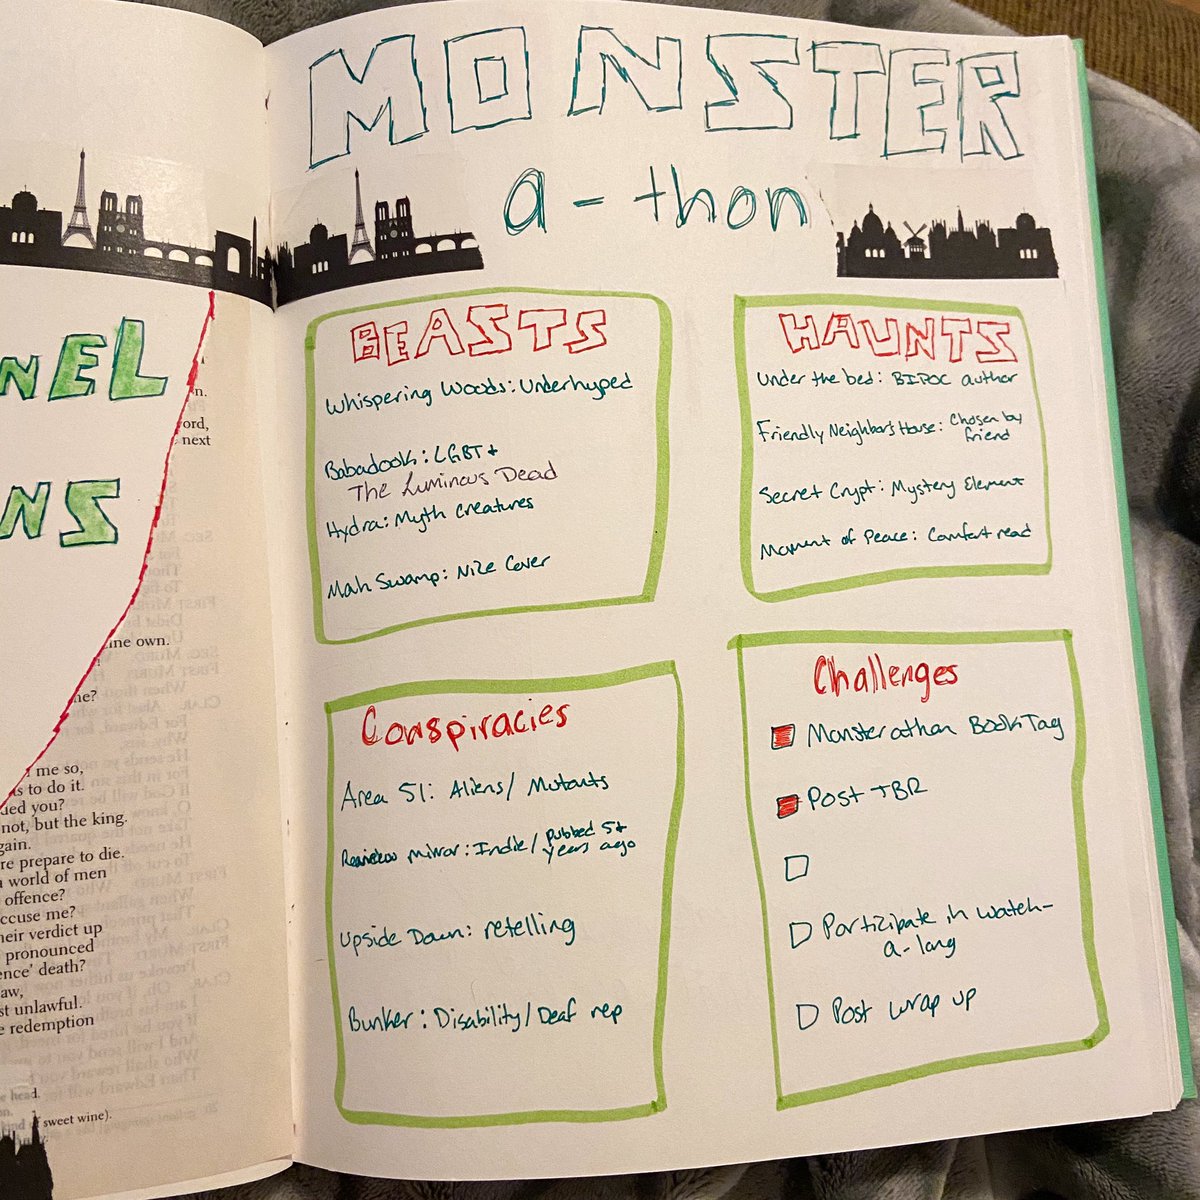 NEL
NS
n.
ord,
next
ine own.
me?
me so,
s to do it.
ded you?
not, but the king.
gain.
re prepare to die.
a world of men
offence?
ccuse me?
heir verdict up
pronounced
ence' death?
law,
st unlawful.
e redemption
e head.
on.
kind of sweet wine).
MONSTER
a-thon
BEASTS
Whispering Woods: Underhyped
Babadook: LGBT+
The Luminous Dead
Hydra: Myth Creatures
Mah Swamp: Nize Cover
HAUNTS
Under the bed: BIPOC author
Friendly Neighbors House: Chosen by
friend
Secret Crypt: Mystery Element
Moment of Peace: Comfort read
Conspiracies
Area 51: Aliens/ Mutants
Mirror: Indie/ pubbed 5+
years ago
Upside Down: retelling
Bunker: Disability/Deaf rep
Challenges
Monsterathon BookTag
Post TBR
Participate in watch-
a-long
Post wrap up